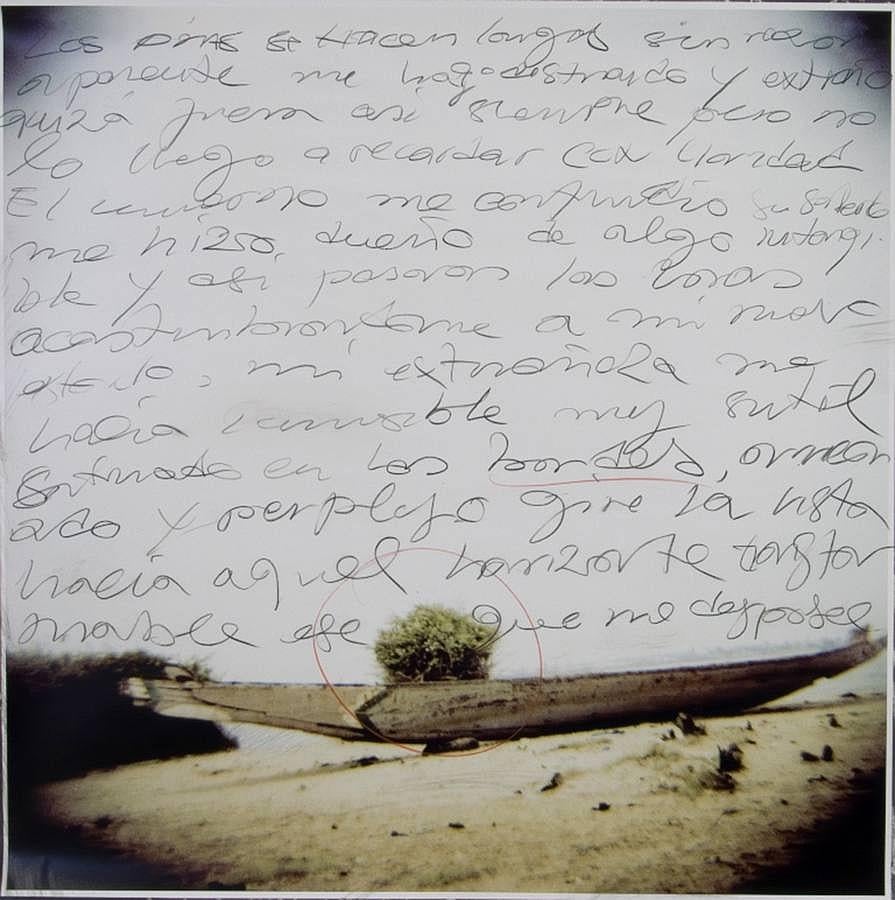 Los días se hacen largos sin razon
aparente me hago distraido y extraño
quizá fuera así siempre pero no
lo llego a recordar con claridad
El universo me confundio
me hizo dueño de algo intangi-
ble y asi pasaron las horas
acostumbrandome a mi nuevo
estado, mi extrañeza me
hacia invisible muy sutil
en los bordes,
y perplejo gire la vista
hacia aquel horizonte transfor
mable ese que me desposee